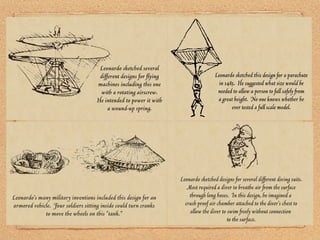 Leonardo sketched several
different designs for flying
machines including this one
with a rotating airscrew.
He intended to power it with
a wound-up spring.
Leonardo sketched this design for a parachute
in 1485. He suggested what size would be
needed to allow a person to fall safely from
a great height. No one knows whether he
ever tested a full scale model.
Leonardo's many military inventions included this design for an
armored vehicle. Four soldiers sitting inside could turn cranks
to move the wheels on this "tank."
Leonardo sketched designs for several different diving suits.
Most required a diver to breathe air from the surface
through long hoses. In this design, he imagined a
crush-proof air chamber attached to the diver's chest to
allow the diver to swim freely without connection
to the surface.